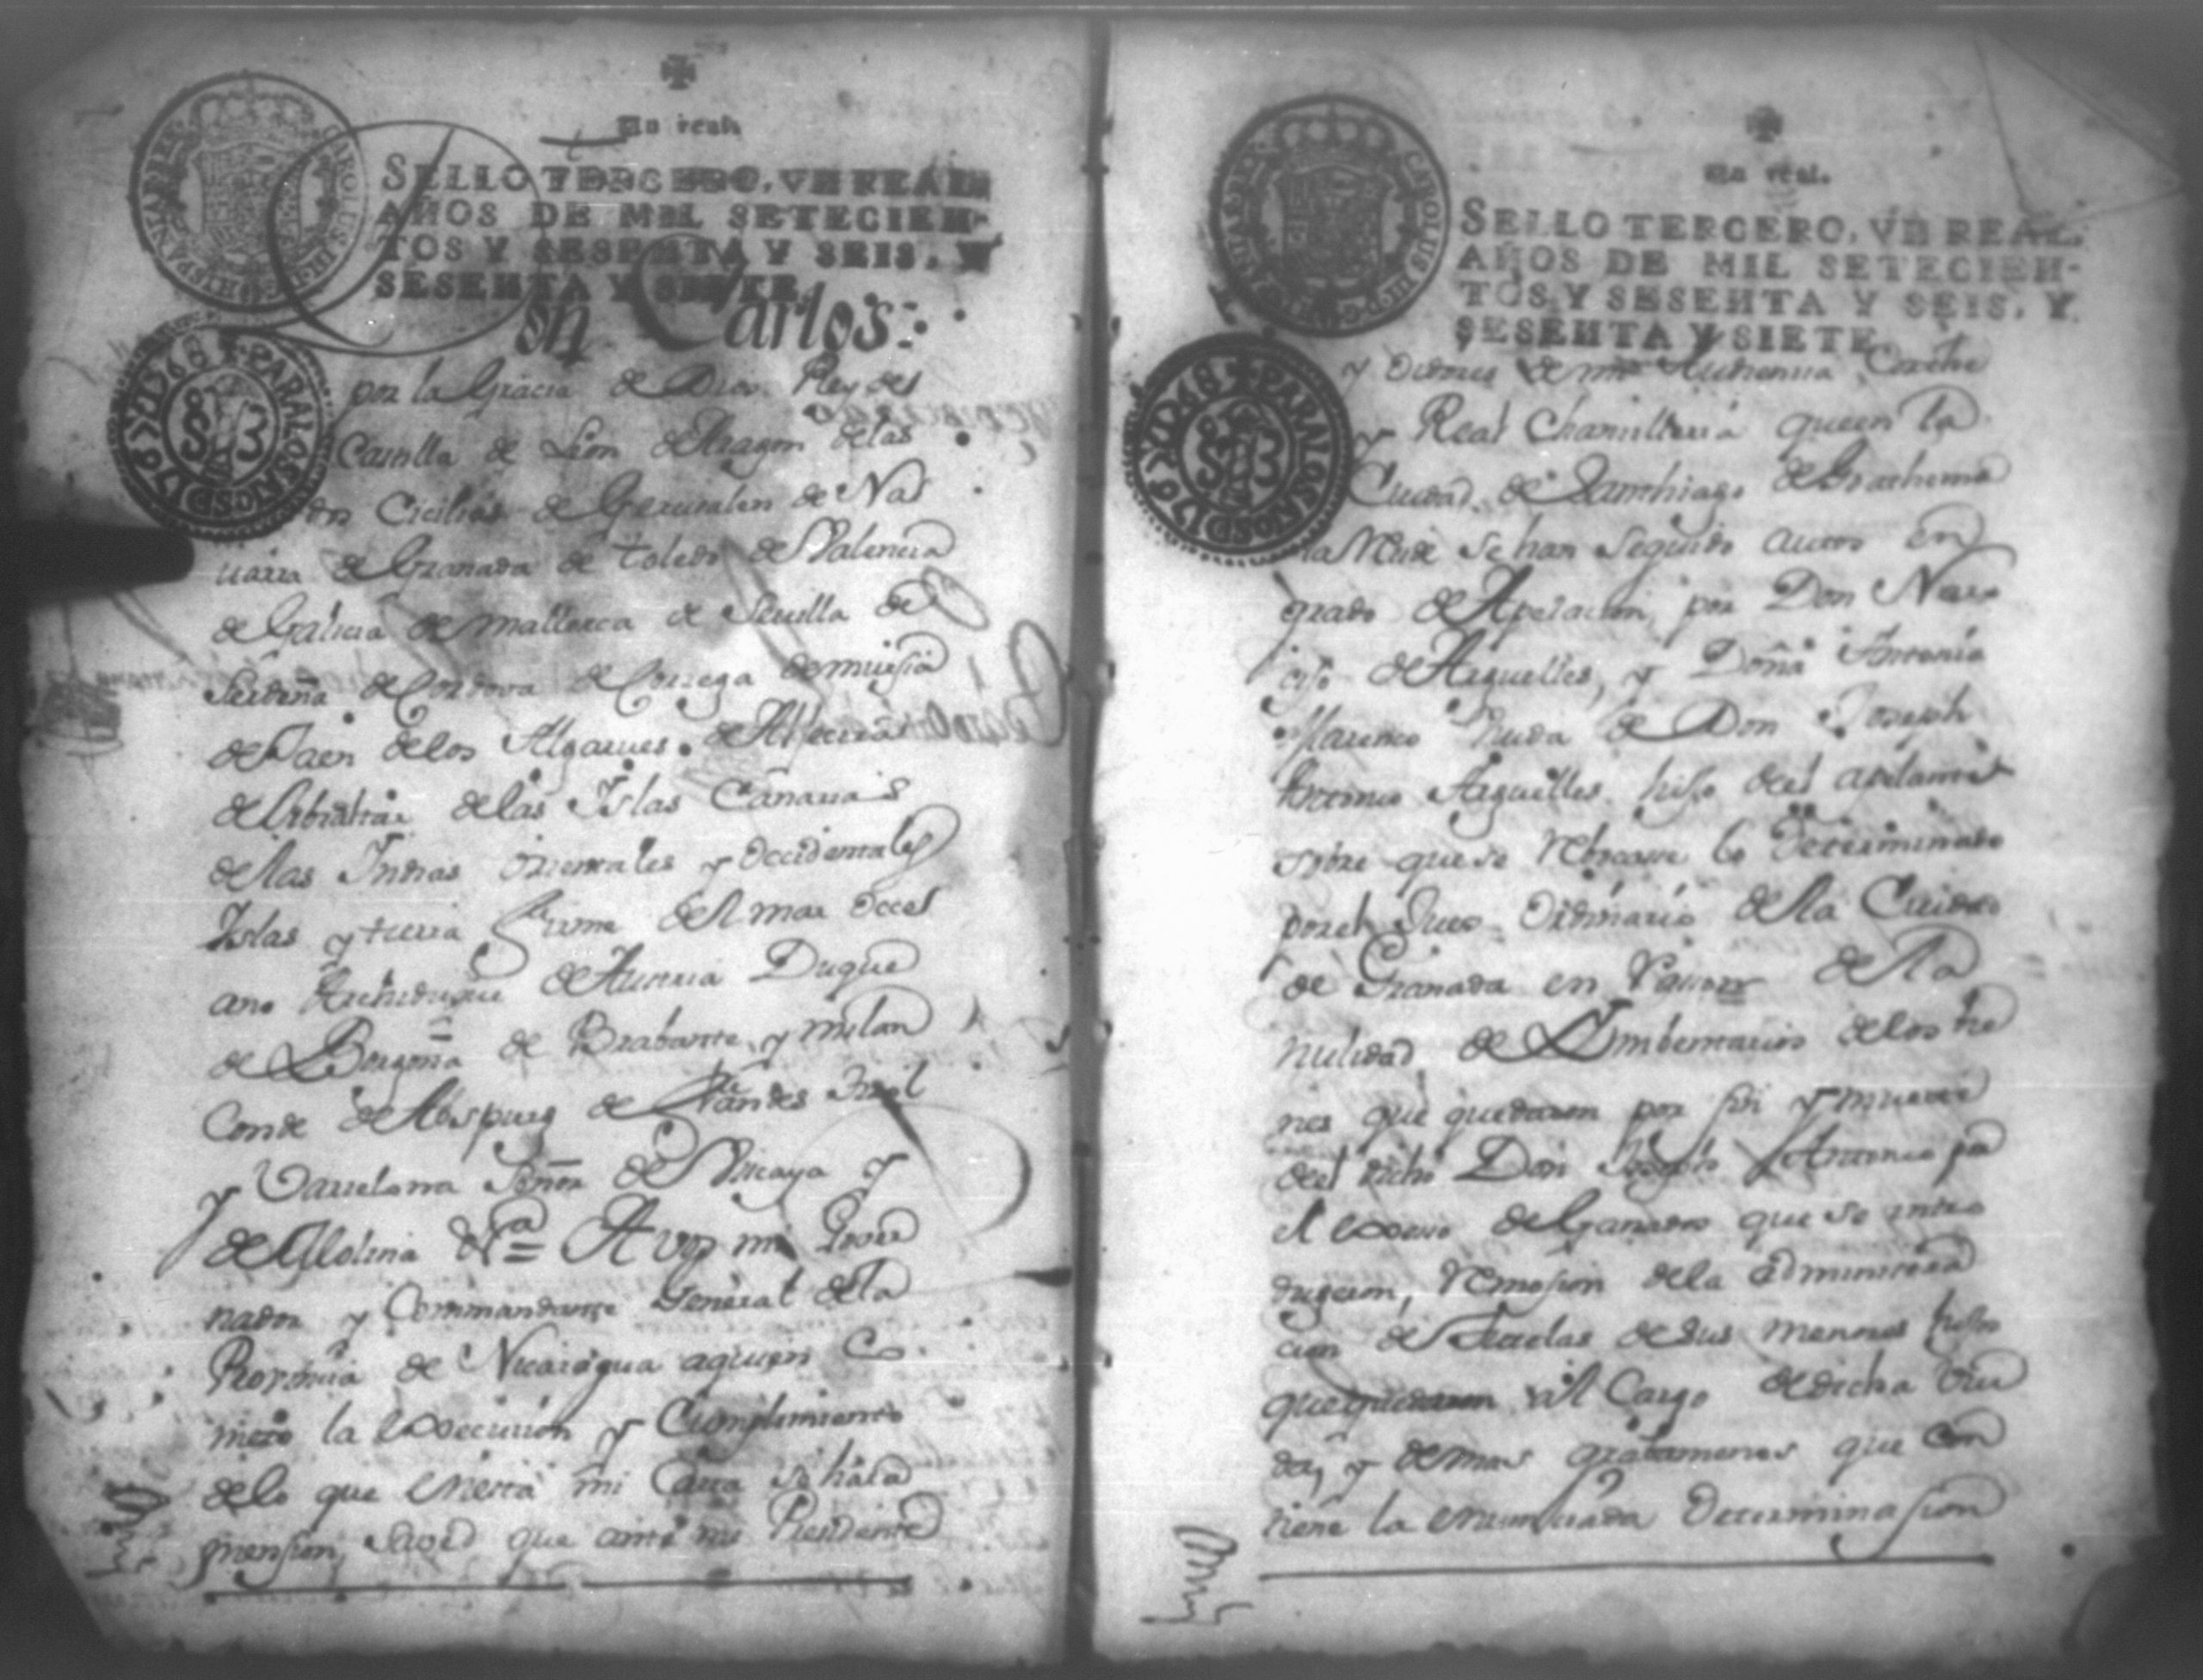 Un real.
SELLO TERCERO, VN REAL,
AÑOS DE MIL SETECIEN-
TOS Y SESENTA Y SEIS, Y
SESENTA Y SIETE.
CAROLUS III D G HISPANIAR REX
PARA LOS AÑOS D 1768 Y D 1769
Don Carlos:
por la Gracia de Dios Rey de
Castilla de Leon de Aragon delas
dos Cicilias de Gerusalen de Na
uarra de Granada de Toledo de Valencia
de Galicia de Mallorca de Seuilla de
Serdeña de Cordova de Corzega de mursia
de Jaen delos Algarues de Algecira
de Gibraltar delas Islas Canarias
delas Indias Orientales y Occidentales
Islas y tierra firme del mar Occe
ano Archiduque de Austria Duque
de Borgoña de Brabante y milan
Conde de Abspurg de Flandes Tirol
y Varzelona Señor de Viscaya y
de Molina &a = A vos mi Gover
nador y Commandante General dela
Provincia de Nicaragua aquien Co
meto la execusion y Cumplimiento
delo que enesta mi Carta se hara
mension, Saved que ante mi Presidente
Un real.
SELLO TERCERO, VN REAL,
AÑOS DE MIL SETECIEN-
TOS Y SESENTA Y SEIS, Y
SESENTA Y SIETE.
CAROLUS III D G HISPANIAR REX
PARA LOS AÑOS D 1768 Y D 1769
y Oidores de mi Audiencia Corte
y Real Chansilleria queen la
Ciudad de Santhiago de Goathema
la Reside se han seguido autos en
grado de Apelacion por Don Nar
ciso de Arguelles, y Doña Antonia
Marenco Viuda de Don Joseph
Antonio Arguelles hijo del apelante
sobre que se Rebocase lo Determinado
porel Jues Ordinario dela Ciudad
de Granada en rason dela
nulidad de Ymbentarios delos bie
nes que quedaron por fin y muerte
del dicho Don Joseph Antonio por
el exseso de Ganados que se intro
dugeron, Remosion dela administra
cion de Tutelas de sus menores hijos
que quedaron al Cargo de dicha Viu
da, y demas grabamenes que con
tiene la enunciada Determinasion